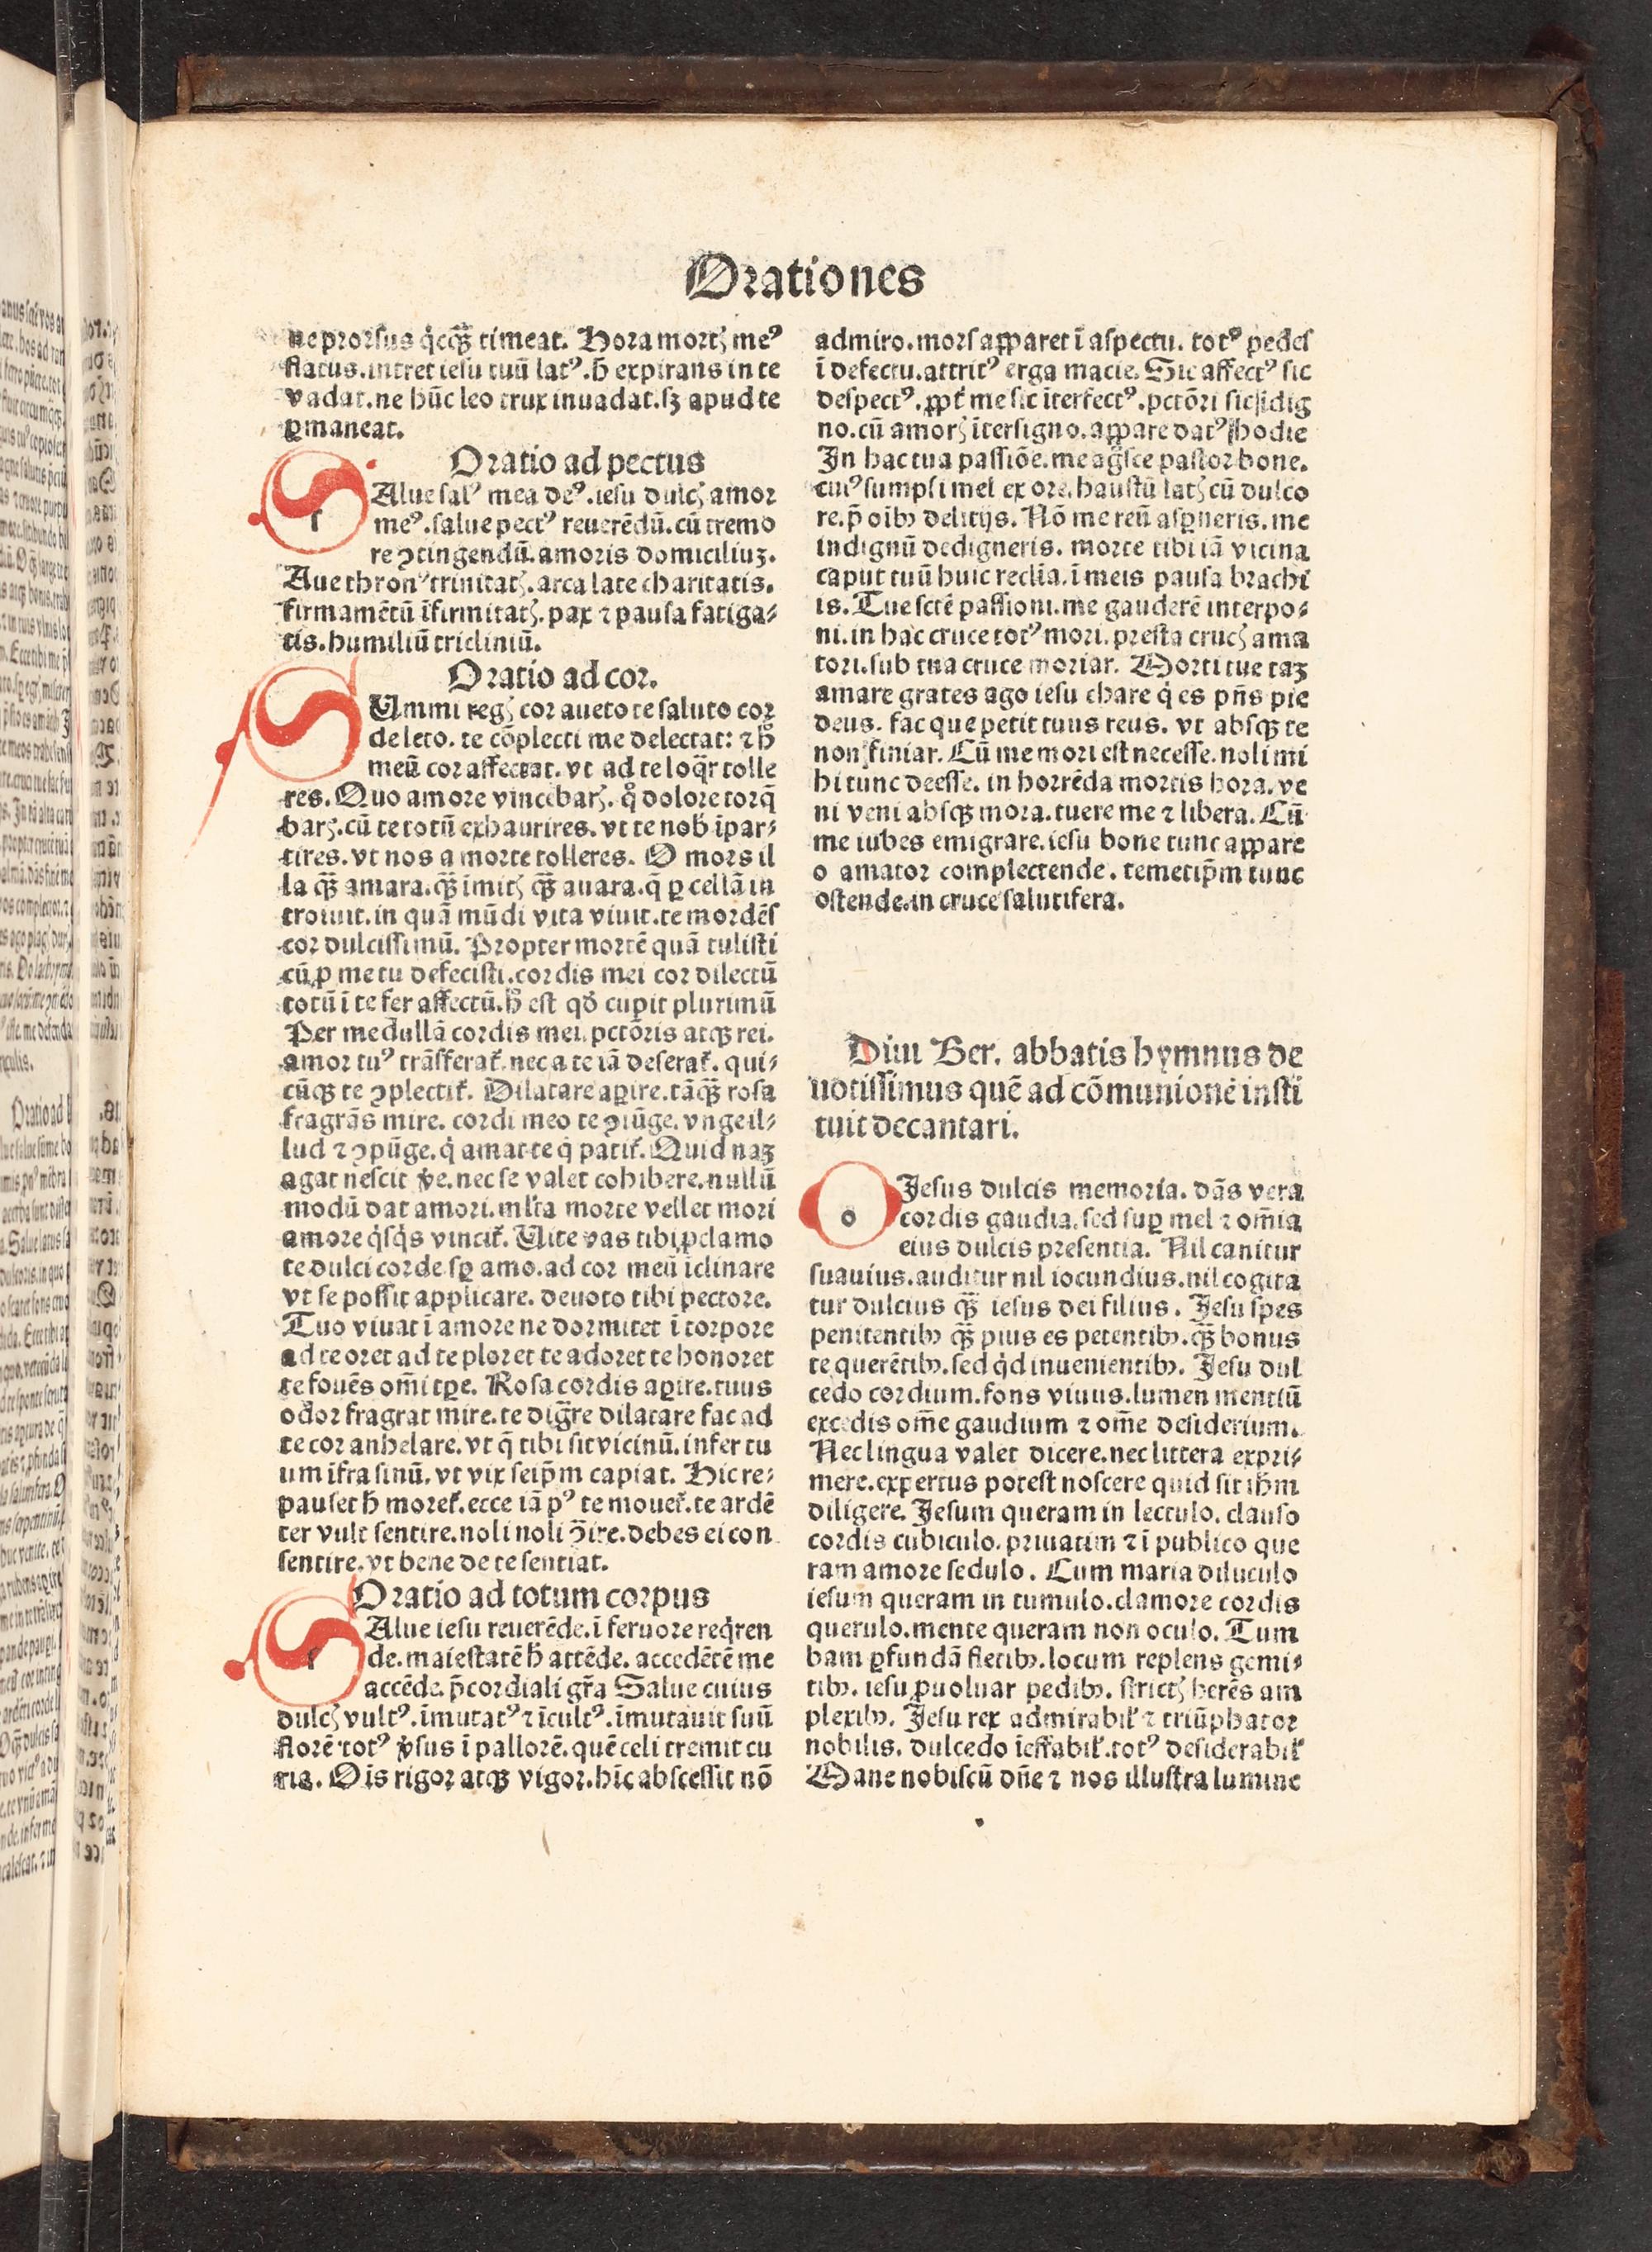 Orationes
ne prorsus q̇cq̄ꝫ timeat. Hora mortꝭ meꝰ
flatus.intret iesu tuū latꝰ.h̄ expirans in te
vadat.ne hūc leo trux inuadat.sꝫ apud te
ꝑmaneat.
Oratio ad pectus
SAlue salꝰ mea deꝰ.iesu dulcꝭ amor
meꝰ.salue pectꝰ reuerēdū.cū tremo
re ꝯtingendū.amoris domiciliuꝫ.
Aue thronꝰ trinitatꝭ.arca late charitatis.
firmamētū īfirmitatꝭ.pax ⁊ pausa fatiga⸗
tis.humiliū tricliniū.
Oratio ad cor.
SUmmi regꝭ cor aueto te saluto cor
de leto. te cōplecti me delectat: ⁊ h̄
meū cor affectat. vt ad te loq̄r tolle
res. Quo amore vincebarꝭ. q̊ dolore torq̄
barꝭ.cū te totū exhaurires. vt te nob̄ īpar⸗
tires. vt nos a morte tolleres. O mors il
la q̄ꝫ amara.q̄ꝫ īmitꝭ q̄ꝫ auara.q̄ ꝑ cellā in
troiuit.in quā mūdi vita viuit.te mordēs
cor dulcissimū. Propter mortē quā tulisti
cū ꝓ me tu defecisti.cordis mei cor dilectū
totū ī te fer affectū.h̊ est qď cupit plurimū
Per medullā cordis mei.pctōris atqꝫ rei.
amor tuꝰ trāsferat᷑.nec a te iā deserat᷑. qui⸗
cūqꝫ te ꝯplectit᷑. Dilatare aꝑire.tāq̄ꝫ rosa
fragrās mire. cordi meo te ꝯiūge. vnge il⸗
lud ⁊ ꝯpūge.q̇ amat te q̇ patit᷑. Quid naꝫ
agat nescit v̄e.nec se valet cohibere.nullū
modū dat amori.ml̄ta morte vellet mori
amore q̇sq̇s vincit᷑. Uite vas tibi ꝓclamo
te dulci corde sꝑ amo.ad cor meū īclinare
vt se possit applicare. deuoto tibi pectore.
Tuo viuat ī amore ne dormitet ī torpore
ad te oret ad te ploret te adoret te honoret
te fouēs om̄i tꝑe. Rosa cordis aꝑire.tuus
odor fragrat mire.te dig̃re dilatare fac ad
te cor anhelare.vt q̄ tibi sit vicinū.infer tu
um īfra sinū. vt vix seip̄m capiat. Hic re⸗
pauset h̄ moret᷑.ecce iā pꝰ te mouet᷑.te ardē
ter vult sentire.noli noli ꝯ̄ire.debes ei con
sentire.vt bene de te sentiat.
Oratio ad totum corpus
SAlue iesu reuerēde.ī feruore req̇ren
de.maiestatē h̄ attēde. accedētē me
accēde.p̄cordiali gr̄a Salue cuius
dulcꝭ vultꝰ.īmutatꝰ ⁊ īcultꝰ.īmutauit suū
florē totꝰ v̄sus ī pallorē.quē celi tremit cu
ria. Ois rigor atqꝫ vigor.hīc abscessit nō
admiro.mors apparet ī aspectu. totꝰ pēdēs
ī defectu.attritꝰ erga macie. Sic affectꝰ sic
despectꝰ.ꝓpt᷑ me sic īterfectꝰ.pctōri sic īdig
no.cū amorꝭ īter signo.appare datꝰ hodie
In hac tua passiōe.me ag̃sce pastor bone.
cuiꝰ sumpsi mel ex ore.haustū latꝭ cū dulco
re.p̄ oibꝰ delitijs. Nō me reū asꝑneris.me
indignū dedigneris. morte tibi iā vicina
caput tuū huic reclīa.ī meis pausa brachi
is. Tue sctē passioni.me gauderē interpo⸗
ni.in hac cruce totꝰ mori.presta crucꝭ ama
tori.sub tua cruce moriar. Morti tue taꝫ
amare grates ago iesu chare q̇ es pn̄s pie
deus. fac que petit tuus reus. vt absqꝫ te
non finiar. Cū me mori est necesse.noli mi
hi tunc deesse. in horrēda mortis hora. ve
ni veni absqꝫ mora.tuere me ⁊ libera. Cū
me iubes emigrare.iesu bone tunc appare
o amator complectende. temetip̄m tunc
ostende.in cruce salutifera.
Diui Ber. abbatis hymnus de
uotissimus quē ad cōmunionē insti
tuit decantari.
O Jesus dulcis memoria. dās vera
cordis gaudia.sed suꝑ mel ⁊ om̄ia
eius dulcis presentia. Nil canitur
suauius.auditur nil iocundius.nil cogita
tur dulcius q̄ꝫ iesus dei filius. Jesu spes
penitentibꝰ q̄ꝫ pius es petentibꝰ.q̄ꝫ bonus
te querētibꝰ.sed q̇d inuenientibꝰ. Jesu dul
cedo cordium.fons viuus.lumen mentiū
excedis om̄e gaudium ⁊ om̄e desiderium.
Nec lingua valet dicere.nec littera expri⸗
mere.expertus potest noscere quid sit ih̄m
diligere. Jesum queram in lectulo. clauso
cordis cubiculo. priuatim ⁊ ī publico que
ram amore sedulo. Cum maria diluculo
iesum queram in tumulo.clamore cordis
querulo.mente queram non oculo. Tum
bam ꝓfundā fletibꝰ.locum replens gemi⸗
tibꝰ. iesu ꝓuoluar pedibꝰ. strictꝭ herēs am
plexibꝰ. Jesu rex admirabil᷑ ⁊ triūphator
nobilis. dulcedo īeffabil᷑.totꝰ desiderabil᷑
Mane nobiscū dn̄e ⁊ nos illustra lumine